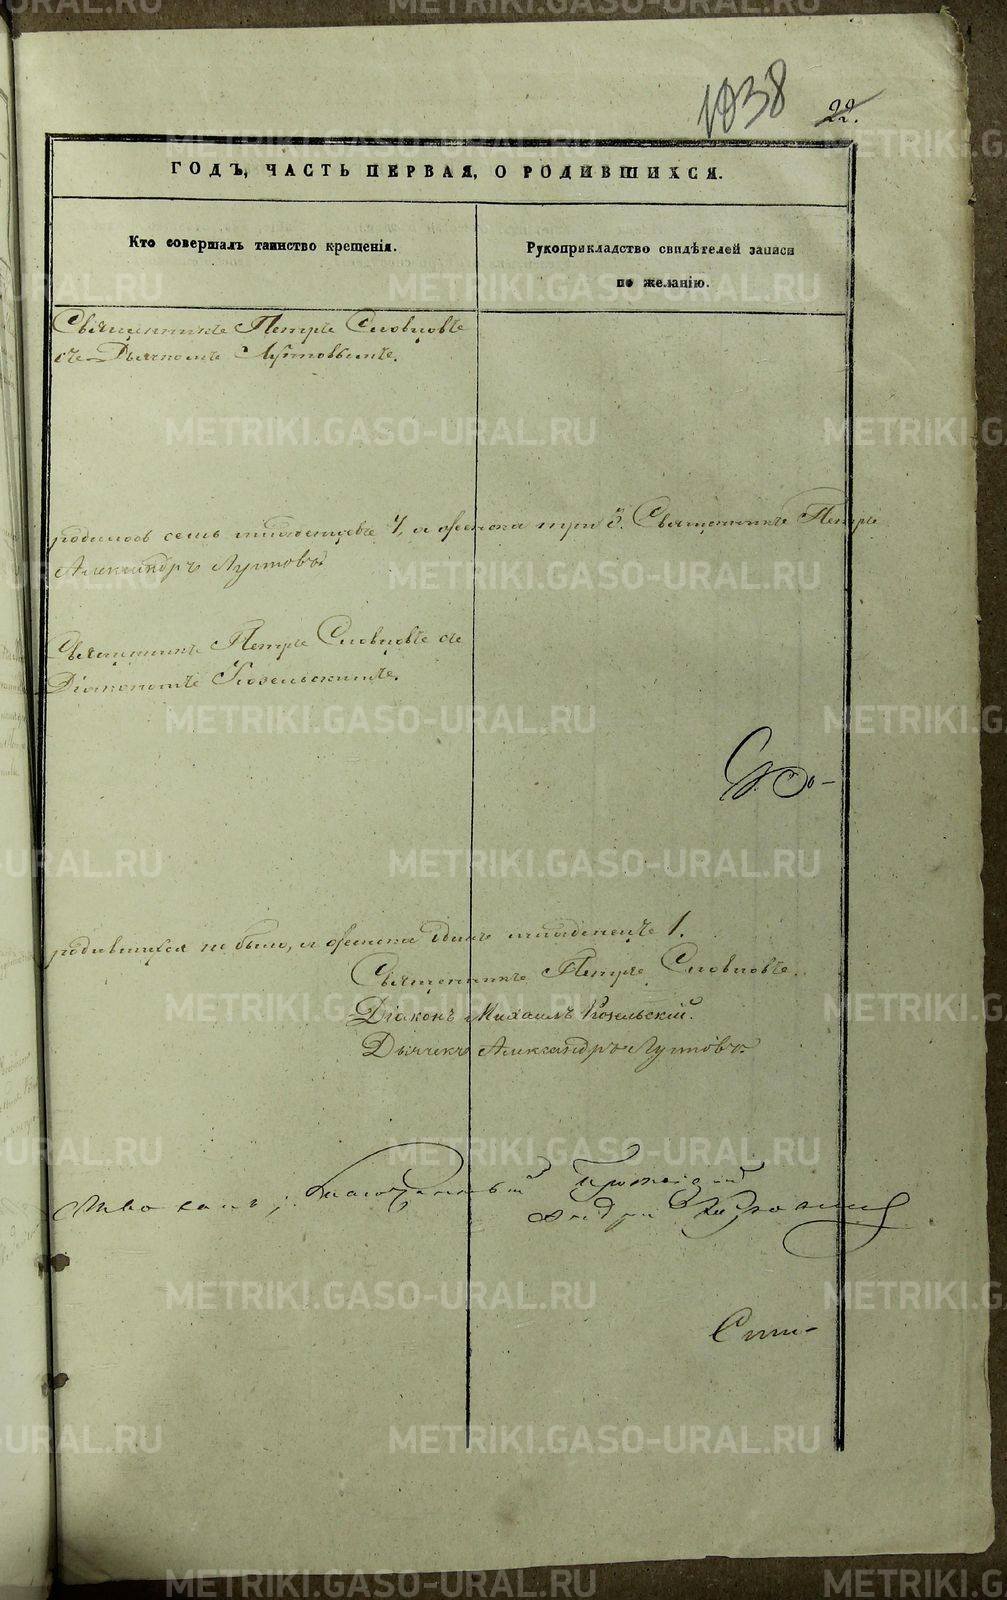 1038 22.
ГОДЪ, ЧАСТЬ ПЕРВАЯ, О РОДИВШИХСЯ.
Кто совершалъ таинство крещенія.
Рукоприкладство свидѣтелей записи
по желанію.
Священникъ Петръ Словцовъ
съ Дьячкомъ Лутовымъ.
родилось семь младенцевъ 7, а женска три 3. Священникъ Петръ
Александръ Лутовъ.
Священникъ Петръ Словцовъ съ
Діакономъ Козельскимъ.
родившихся не было, а женска одинъ младенецъ 1.
Священникъ Петръ Словцовъ.
Діаконъ Михаилъ Козельскій.
Дьячекъ Александръ Лутовъ.
Благочинный
METRIKI.GASO-URAL.RU